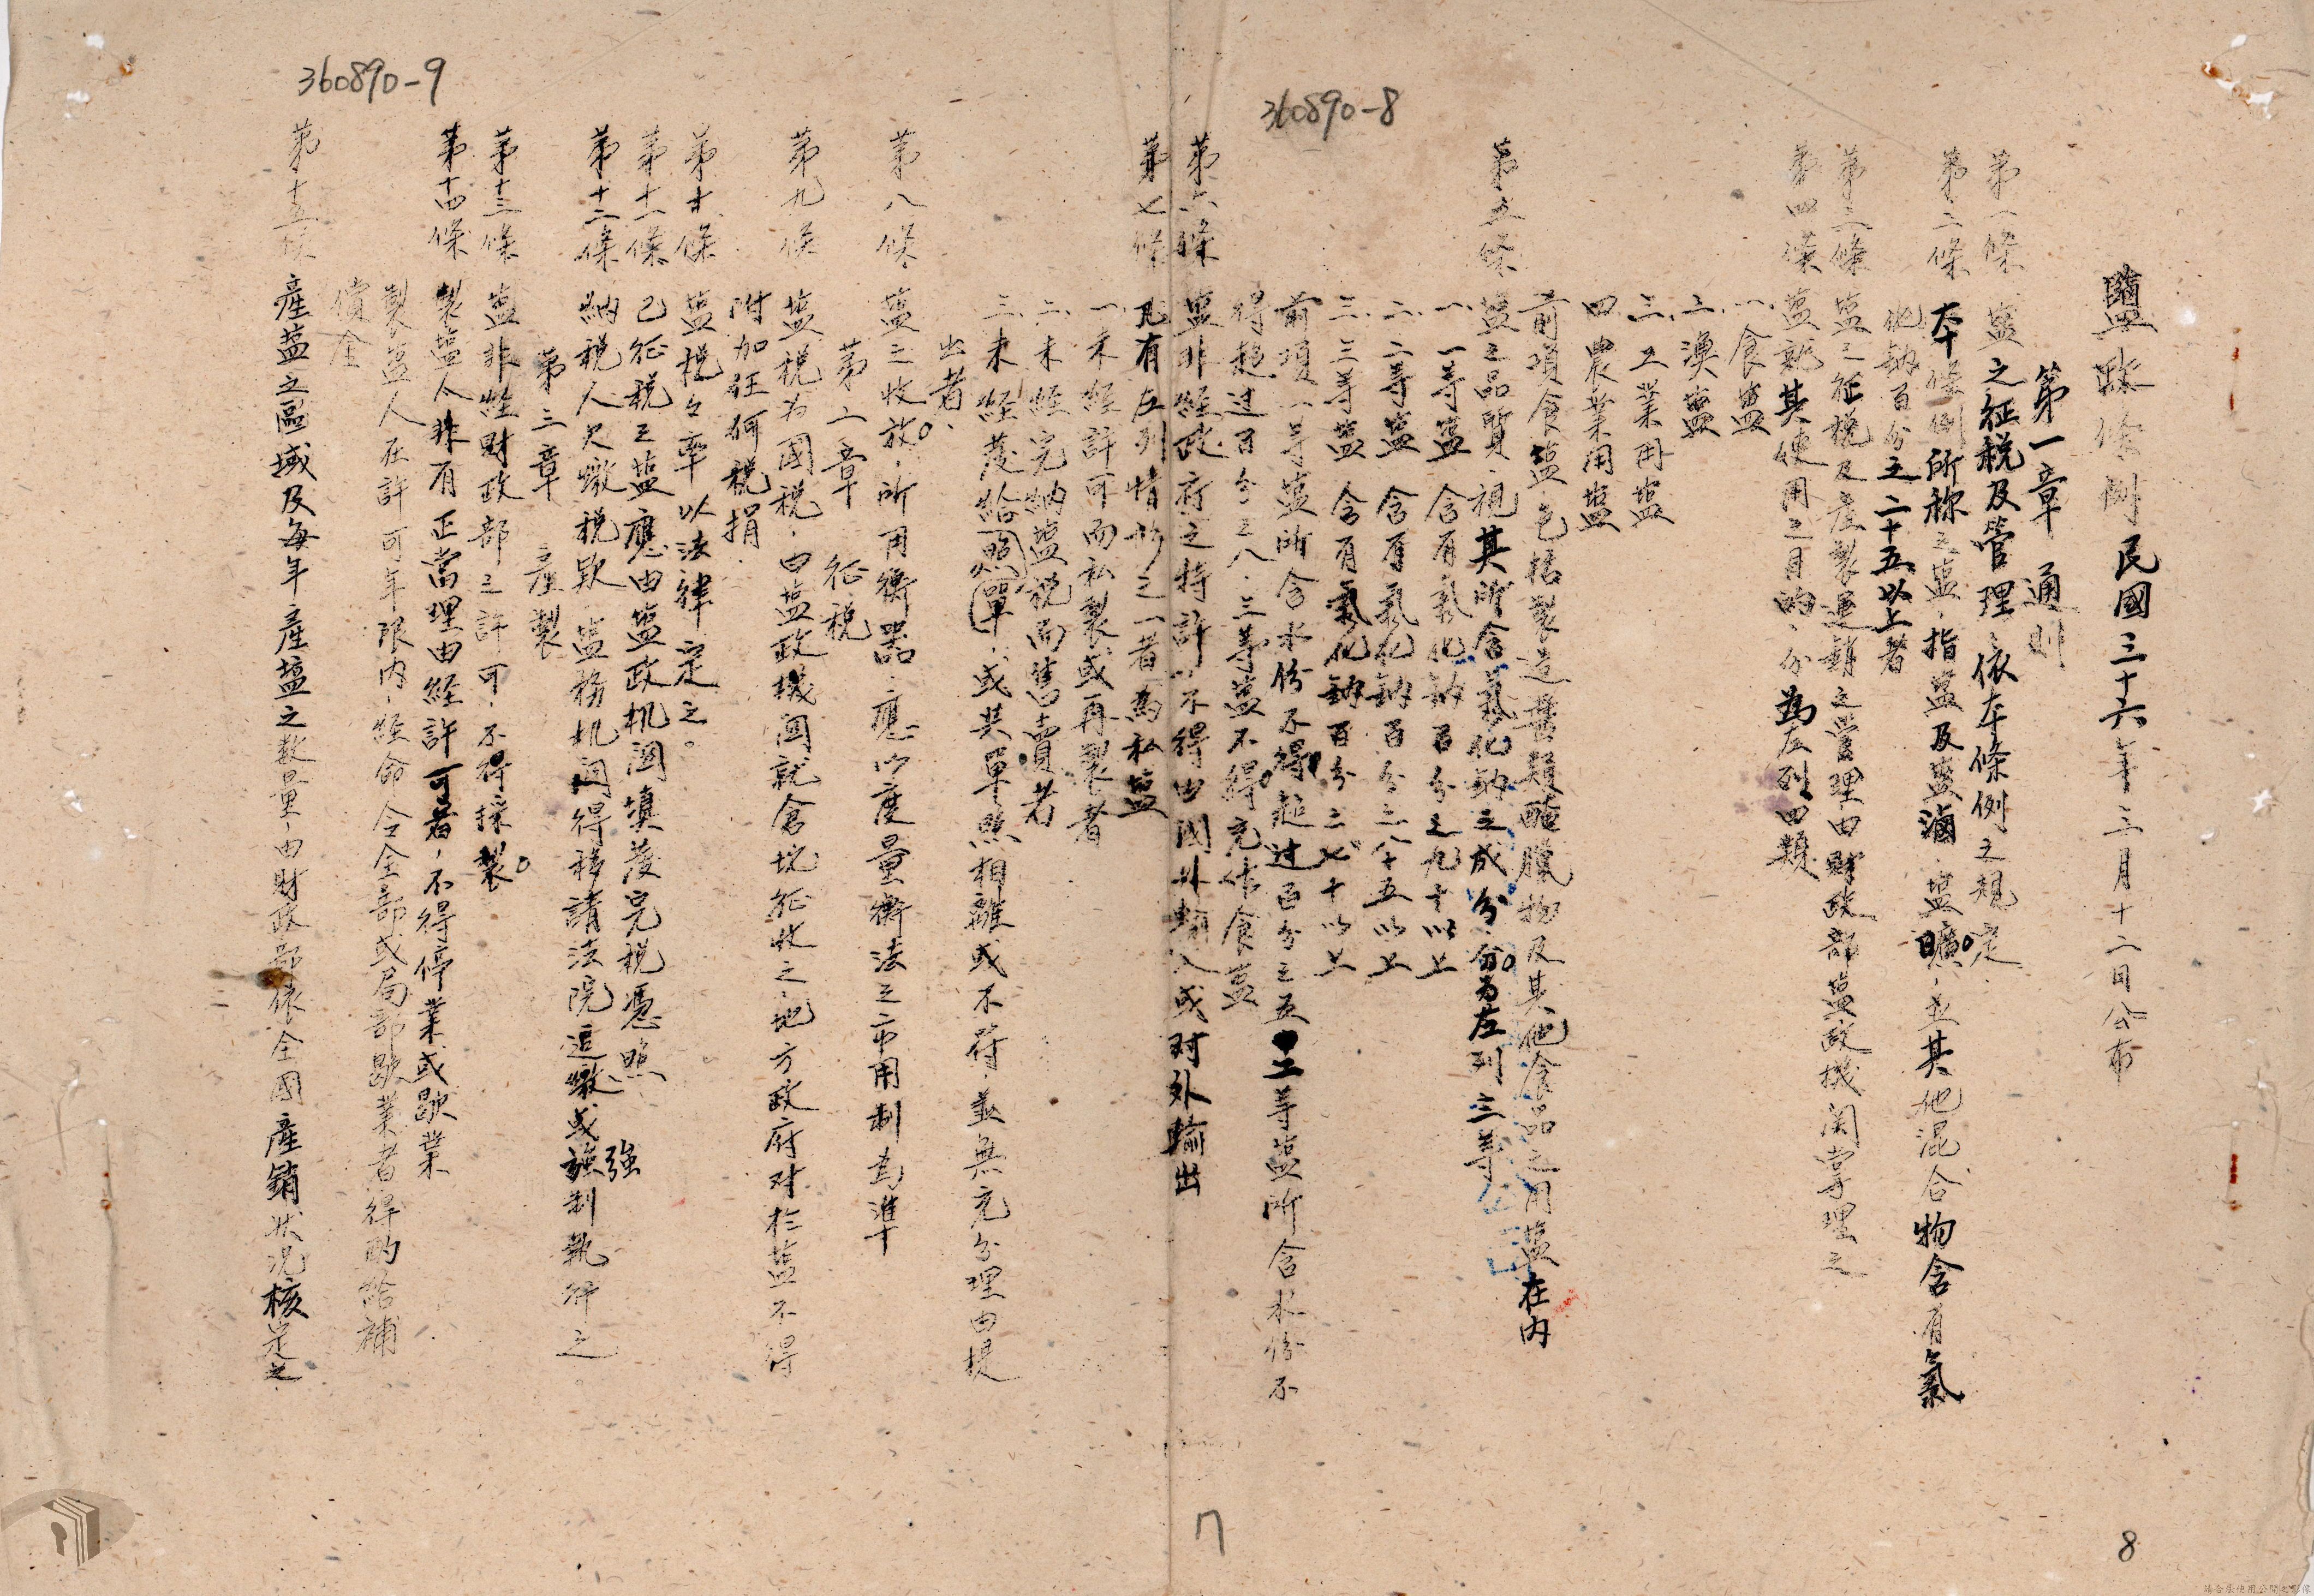 360890-8
鹽政條例 民國三十六年三月十二日公布
第一章 通則
第一條 塩之征税及管理、依本條例之規定.
第二條 本條例所称之塩、指塩及塩滷、塩曠、並其他混合物含有氯
化鈉百分之二十五以上者
第三條 塩之征税及産製運銷之管理由財政部塩政機関掌理之
第四條 塩就其使用之目的、分為左列四類
一、食塩
二、漁塩
三、工業用塩
四、農業用塩
前項食塩包括製造醬類醃臘物及其他食品之用塩在内
第五條 塩之品質、視其所含氯化鈉之成分、分为左列三等
一、一等塩 含有氯化鈉百分之九十以上
二、二等塩 含有氯化鈉百分之八十五以上
三、三等塩 含有氯化鈉百分之七十以上
前項一等塩所含水份不得超过百分之五 二等塩所含水份不
得超过百分之八、三等塩不得充作食塩
第六條 塩非經政府之特許、不得由国外輸入或对外輸出
第七條 凡有左列情形之一者為私塩
一、未經許可而私製或再製者
二、未經完納塩税而售賣者
三、未經發給照單、或其單照相離或不符、並無充分理由提
出者、
第八條 塩之收放、所用衡器、應以度量衡法之市用制為準
第二章 征税
第九條 塩税为國税、由塩政機関就倉坨征收之、地方政府对於塩不得
附加任何税捐
第十條 塩税之率以法律定之。
第十一條 已征税之塩應由塩政机関填發完税憑照
第十二條 納税人欠繳税款、塩務机関得移請法院追繳或強制執行之。
强
第三章 産製
第十三條 塩非經財政部之許可、不得採製。
第十四條 製塩人非有正當理由経許可者、不得停業或歇業
製塩人在許可年限内、經命令全部或局部歇業者得酌給補
償金
第十五條 産塩之區域及每年産塩之数量、由財政部依全國産銷状况核定之
360890-9
7
8